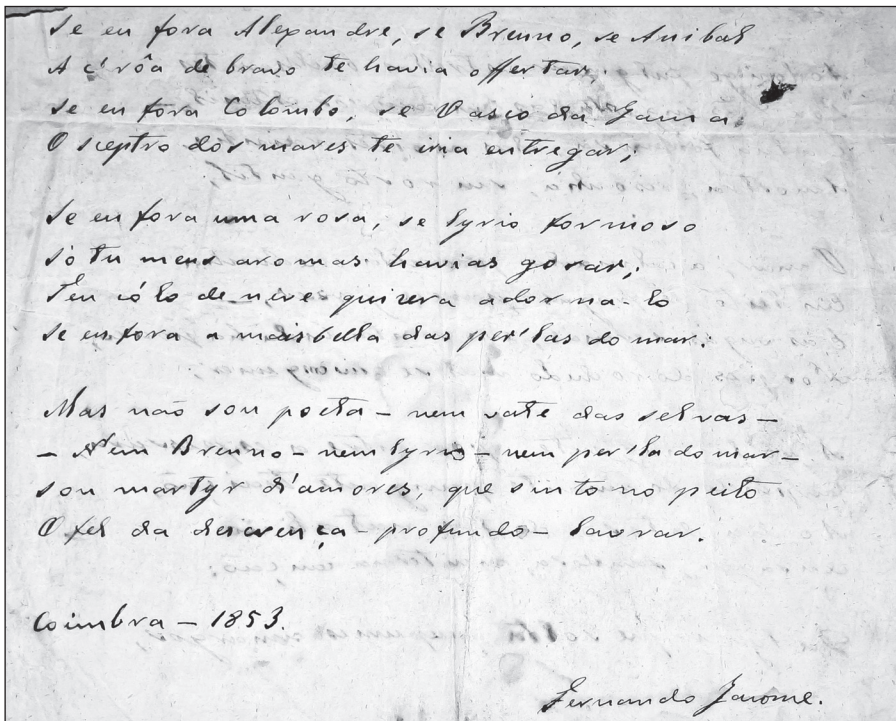 Se eu fora Alexandre, se Brenno, se Anibal
A c'rôa de bravo te havia offertar;
Se eu fora Colombo, se Vasco da Gama,
O sceptro dos mares te iria entregar;
Se eu fora uma rosa, se lyrio formoso
Só tu meus aromas havias gosar;
Teu cólo de neve quizera adorna-lo
Se eu fora a mais bella das per'las do mar:
Mas não sou poeta – nem vate das selvas –
– Nem Brenno – nem lyrio – nem per'la do mar –
Sou martyr d'amores, que sinto no peito
O fel da descrença – profundo – lavrar.
Coimbra – 1853.
Fernando